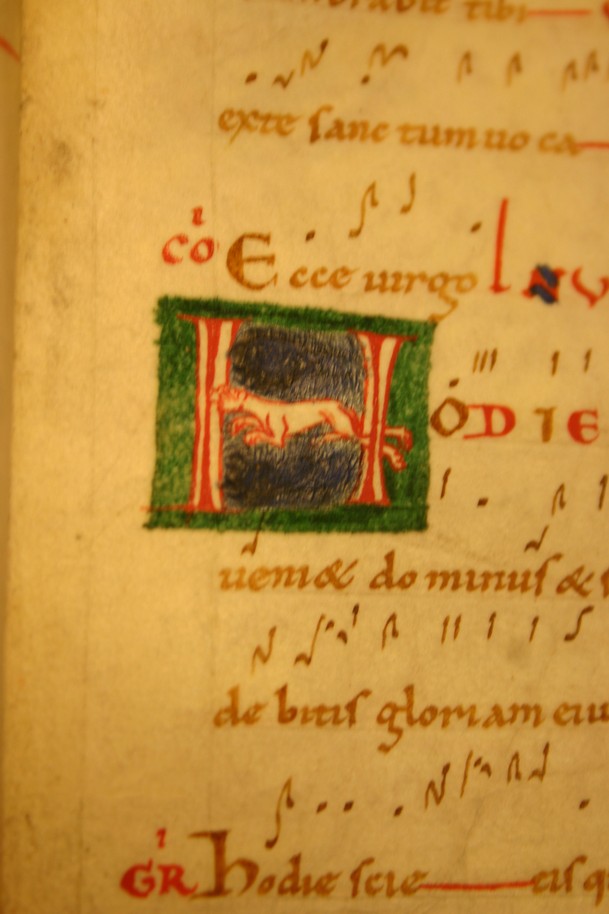 tibi
exte sanc tum uo ca
CO Ecce uirgo IN V
HODIE
ueni& do minus &
de bitis gloriam eiu
GR hodie scie eis q